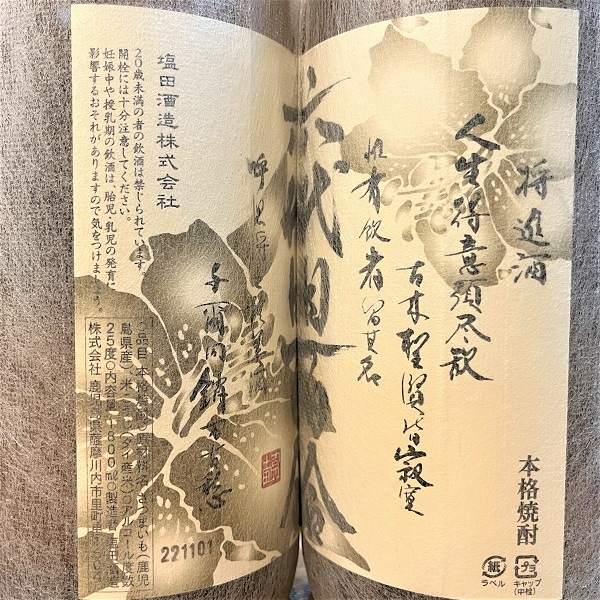 将進酒
人生得意須尽歓
古来聖賢皆寂寞
惟有飲者留其名
六代目百合
本格焼酎
紙
ラベル
プラ
キャップ
(中栓)
呼児将出換美酒
与爾同銷万古愁
塩田酒造株式会社
20歳未満の者の飲酒は禁じられています。
開栓には十分注意してください。
妊娠中や授乳期の飲酒は、胎児・乳児の発育に
影響するおそれがありますので気をつけましょう。
○品目 本格焼酎○原材料 さつまいも(鹿児
島県産)、米こうじ(タイ産米)○アルコール度数
25度○内容量 1800ml○製造者 塩田酒造
株式会社 鹿児島県薩摩川内市里町里
221101